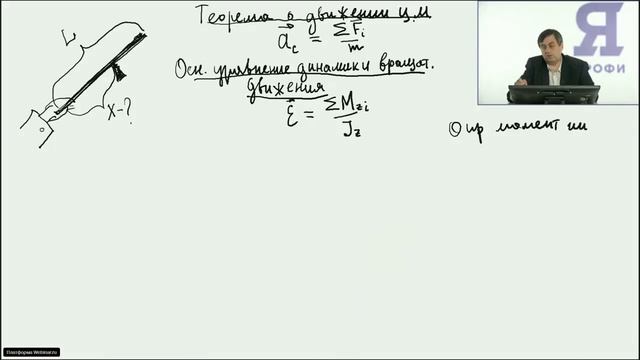 Теорема о движении ц.м
a⃗c = ΣF⃗i/m
Осн. уравнение динамики вращат.
движения
ε⃗ = ΣMzi/Jz
L
x-?
Опр момент ин
Я
РОФИ
Платформа Webinar.ru